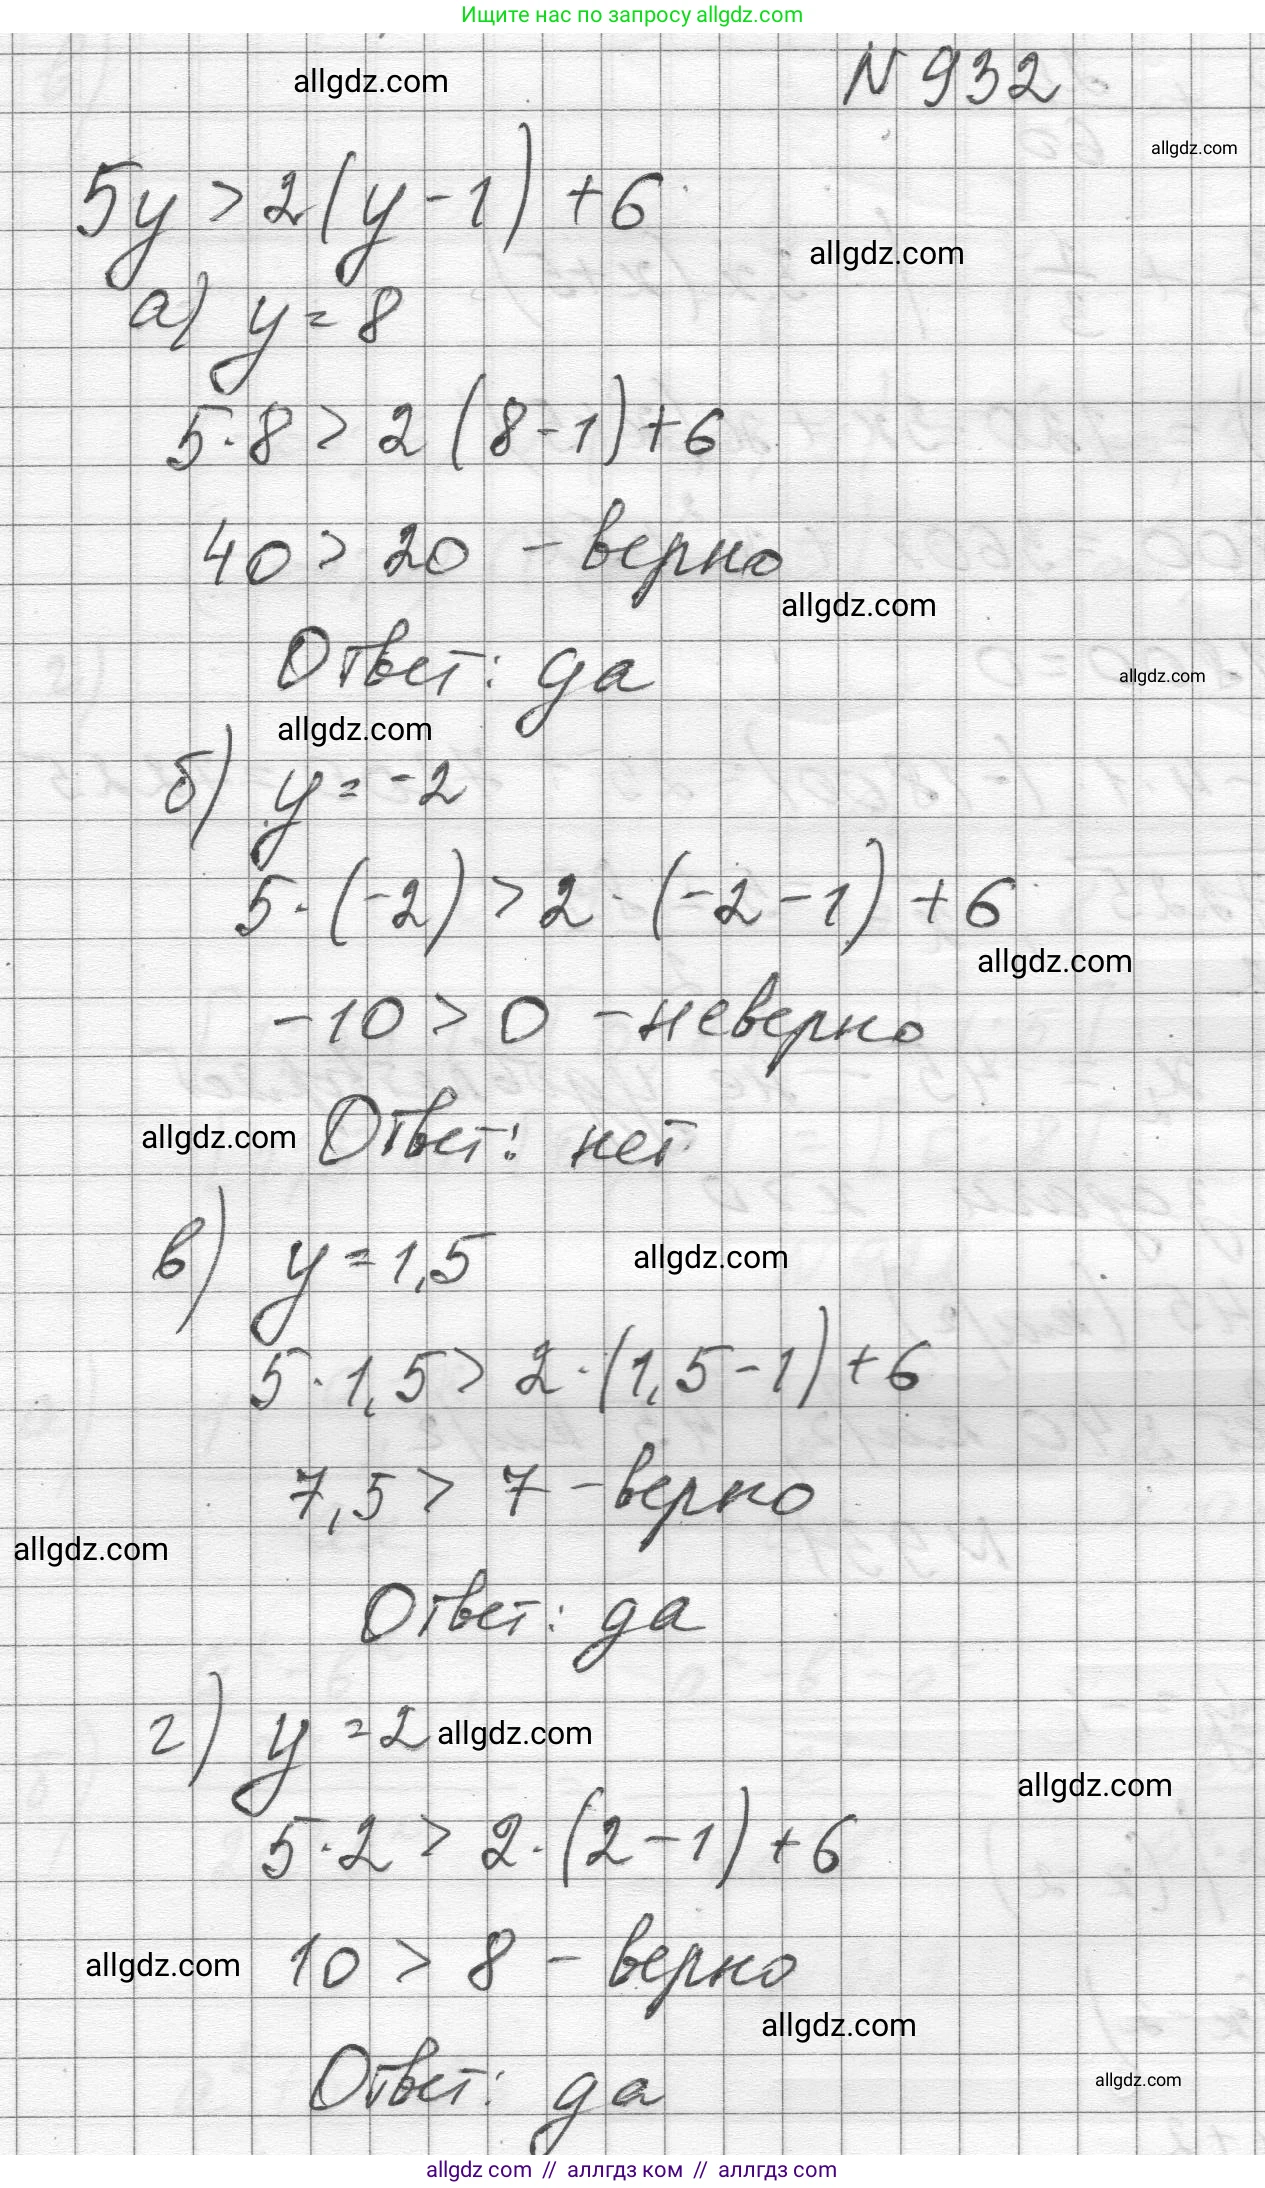 Ищите нас по запросу allgdz.com
allgdz.com
N 932
allgdz.com
5y > 2(y - 1) + 6
allgdz.com
а) y = 8
5 · 8 > 2 (8 - 1) + 6
40 > 20 - верно
allgdz.com
Ответ: да
allgdz.com
allgdz.com
б) y = -2
5 · (-2) > 2 · (-2 - 1) + 6
allgdz.com
-10 > 0 - неверно
allgdz.com Ответ: нет
в) y = 1,5 allgdz.com
5 · 1,5 > 2 · (1,5 - 1) + 6
7,5 > 7 - верно
allgdz.com
Ответ: да
г) y = 2 allgdz.com
allgdz.com
5 · 2 > 2 · (2 - 1) + 6
allgdz.com 10 > 8 - верно
allgdz.com
Ответ: да
allgdz.com
allgdz com // аллгдз ком // аллгдз com